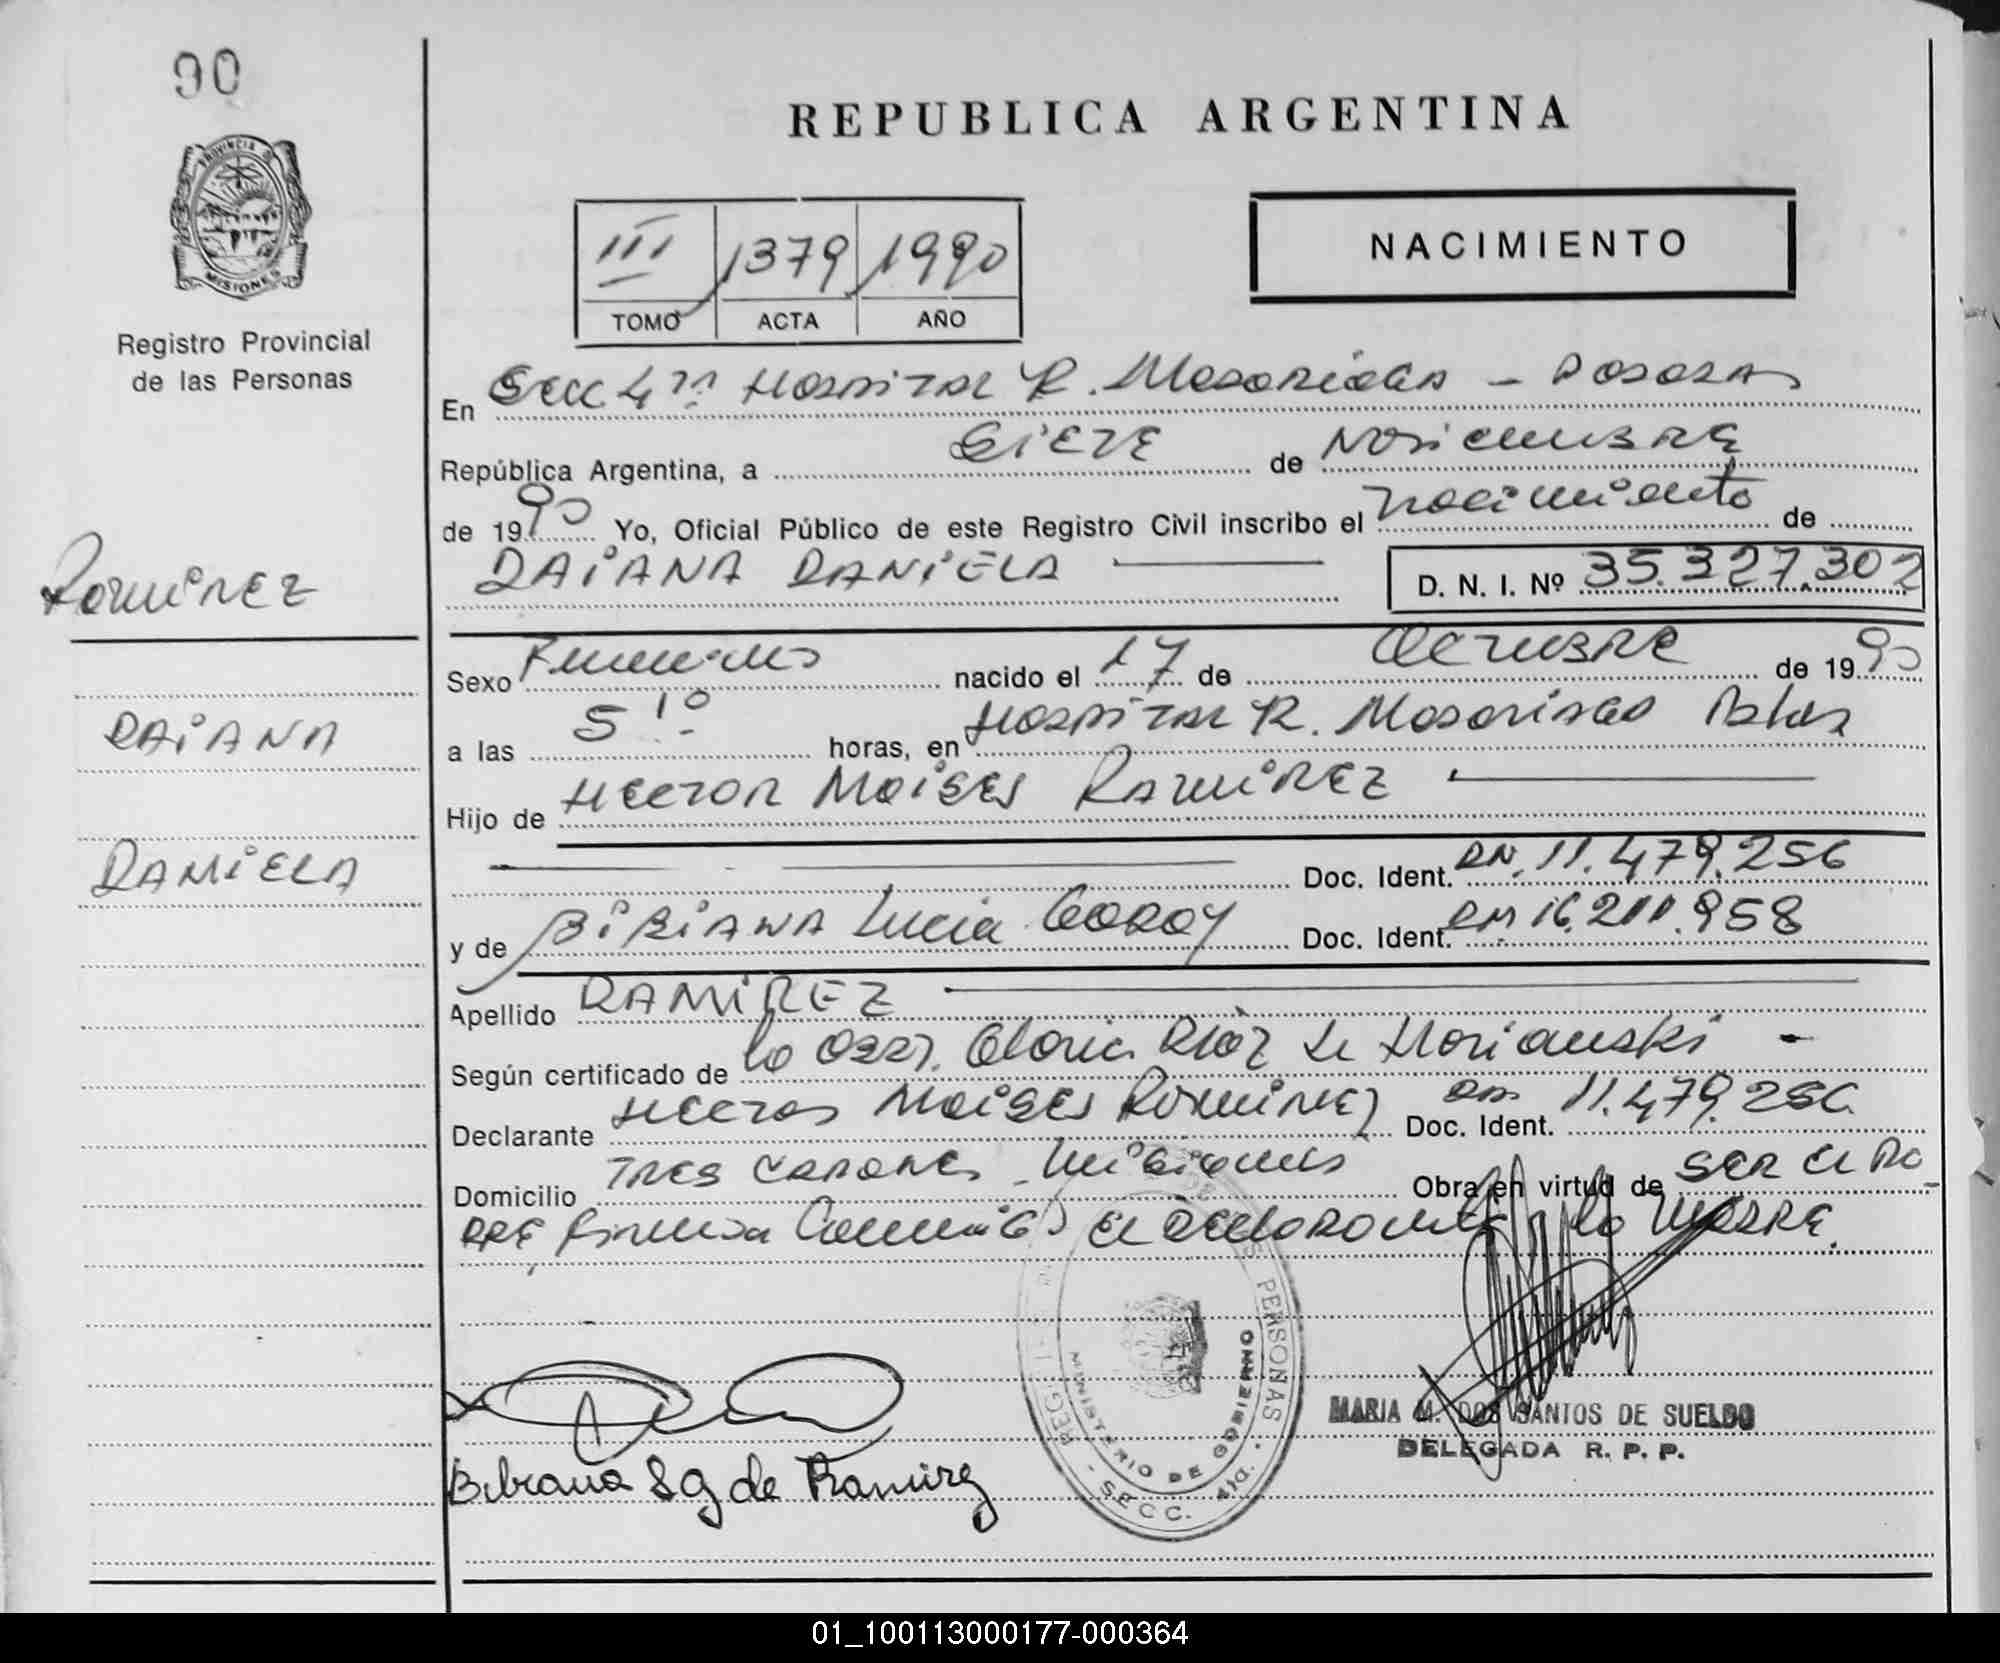 90
REPUBLICA ARGENTINA
PROVINCIA DE
MISIONES
Registro Provincial
de las Personas
III 1379 1990
TOMO ACTA AÑO
NACIMIENTO
En Secc 4ta Hospital R. Madariaga - Posadas
República Argentina, a SIETE de Noviembre
de 1990 Yo, Oficial Público de este Registro Civil inscribo el nacimiento de
DAIANA DANIELA D. N. I. Nº 35.327.302
Ramirez
DAIANA
DANIELA
Sexo Femenino nacido el 17 de Octubre de 1990
a las 5 10 horas, en Hospital R. Madariaga Pdas
Hijo de Hector Moises Ramirez
Doc. Ident. DN. 11.479.256
y de BIBIANA Lucia Godoy Doc. Ident. DN 16.200.958
Apellido RAMIREZ
Según certificado de la Obst. Gloria Diaz de Morianski -
Declarante Hector Moises Ramirez Doc. Ident. DN 11.479.256
Domicilio Tres Capones Misiones Obra en virtud de SER el Pa
DRE firman el declarante y la Madre.
Bibiana L G de Ramirez
PERSONAS
MINISTERIO DE GOBIERNO
- SECC. 4ta. -
MARIA M. DOS SANTOS DE SUELDO
DELEGADA R. P. P.
01_100113000177-000364